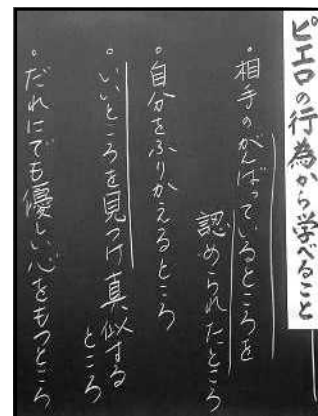 ピエロの行為から学べること
・相手のがんばっているところを
認められたところ
・自分をふりかえるところ
・いいところを見つけ真似する
ところ
・だれにでも優しい心をもつところ